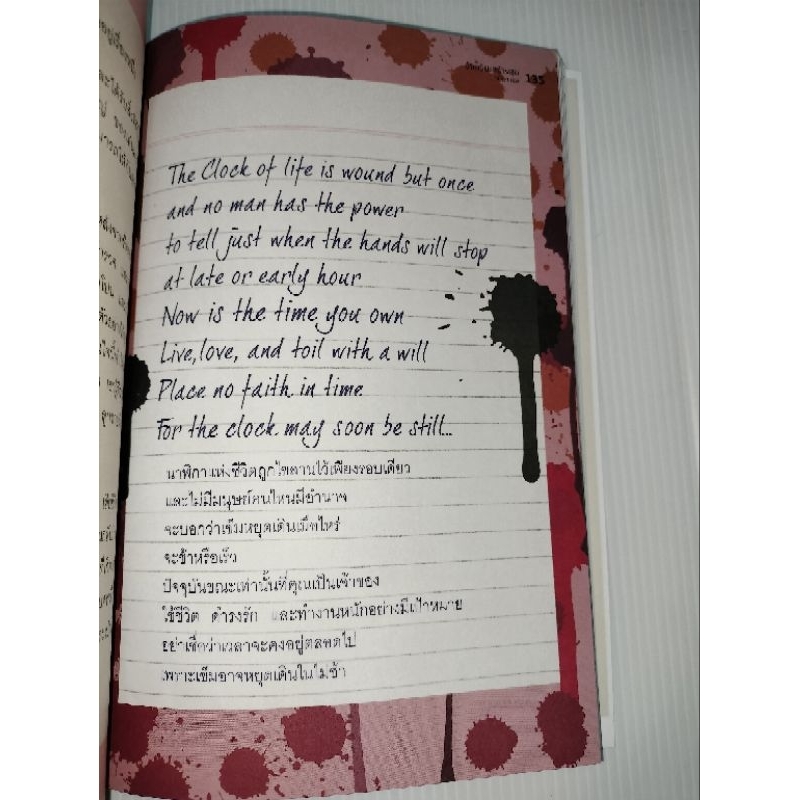 135
The Clock of life is wound but once
and no man has the power
to tell just when the hands will stop
at late or early hour
Now is the time you own
Live, love, and toil with a will
Place no faith in time
For the clock may soon be still...
นาฬิกาแห่งชีวิตถูกไขลานไว้เพียงรอบเดียว
และไม่มีมนุษย์คนไหนมีอำนาจ
จะบอกว่าเข็มหยุดเดินเมื่อไหร่
จะช้าหรือเร็ว
ปัจจุบันขณะเท่านั้นที่คุณเป็นเจ้าของ
ใช้ชีวิต ดำรงรัก และทำงานหนักอย่างมีเป้าหมาย
อย่าเชื่อว่าเวลาจะคงอยู่ตลอดไป
เพราะเข็มอาจหยุดเดินในไม่ช้า